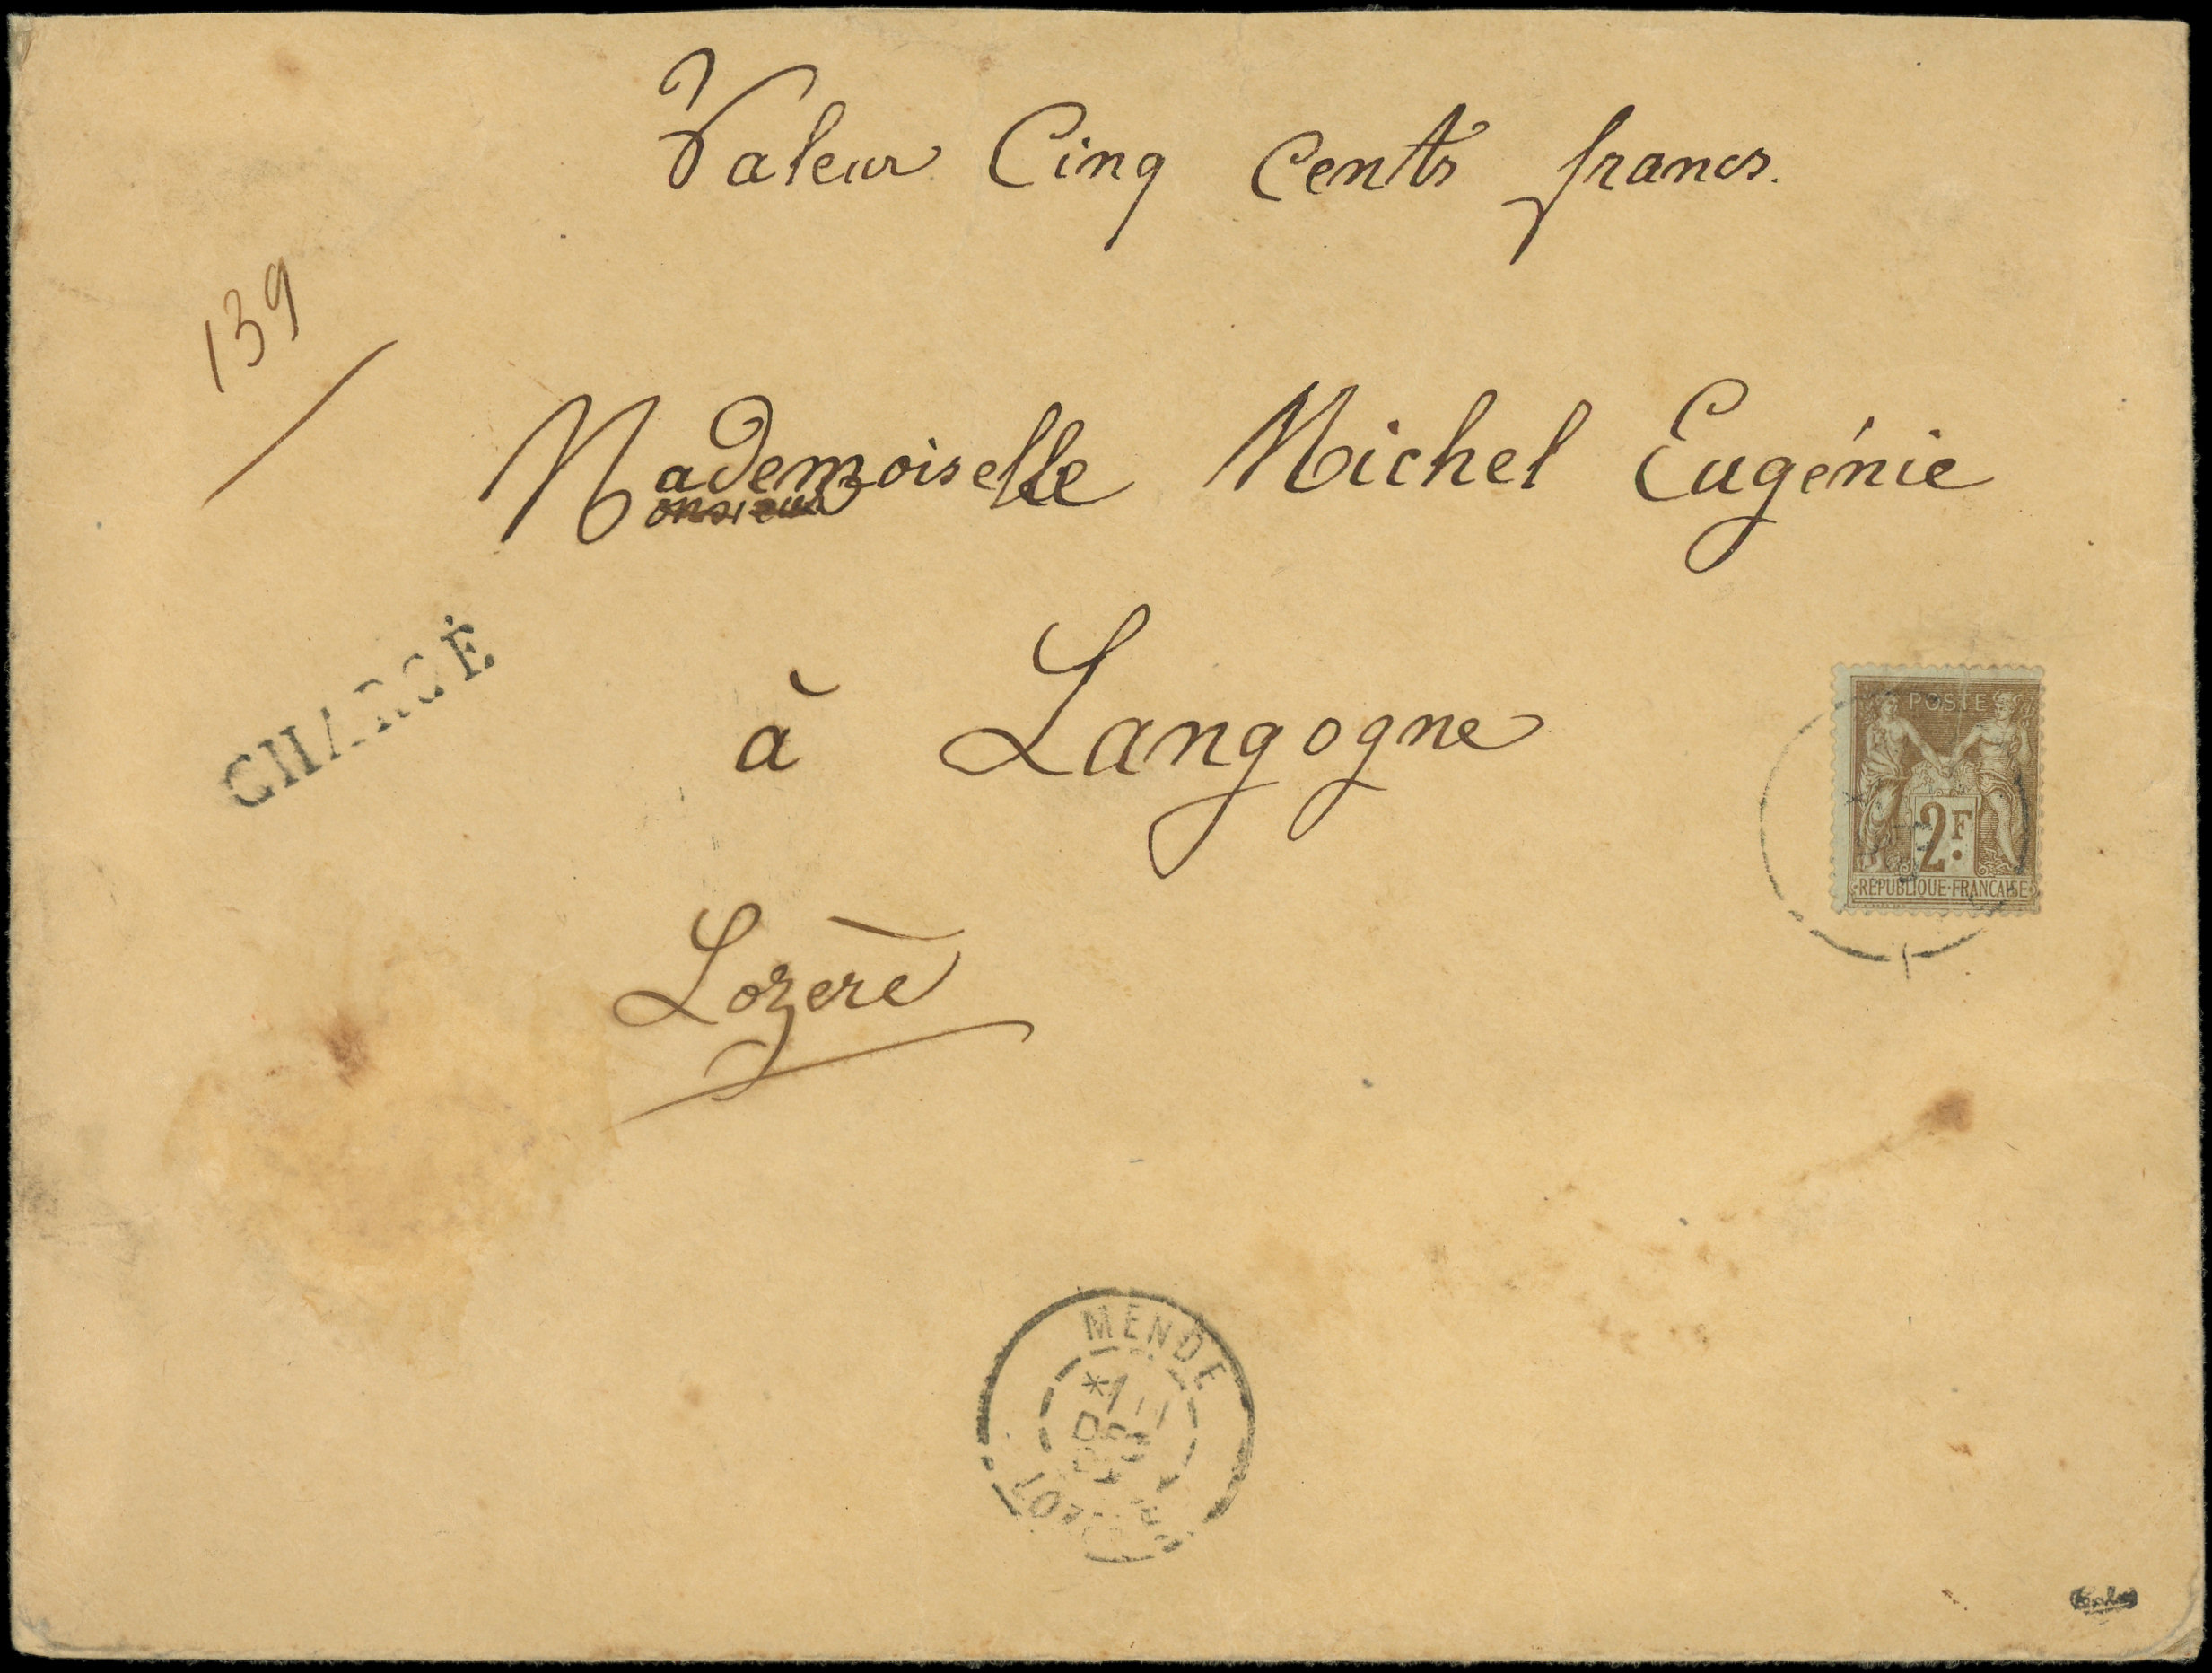 Valeur Cinq Cents francs.
139
Mademoiselle Michel Eugénie
onsieur
CHARGÉ
à Langogne
POSTE
2F
REPUBLIQUE FRANCAISE
Lozère
MENDE
DEC
LOZERE